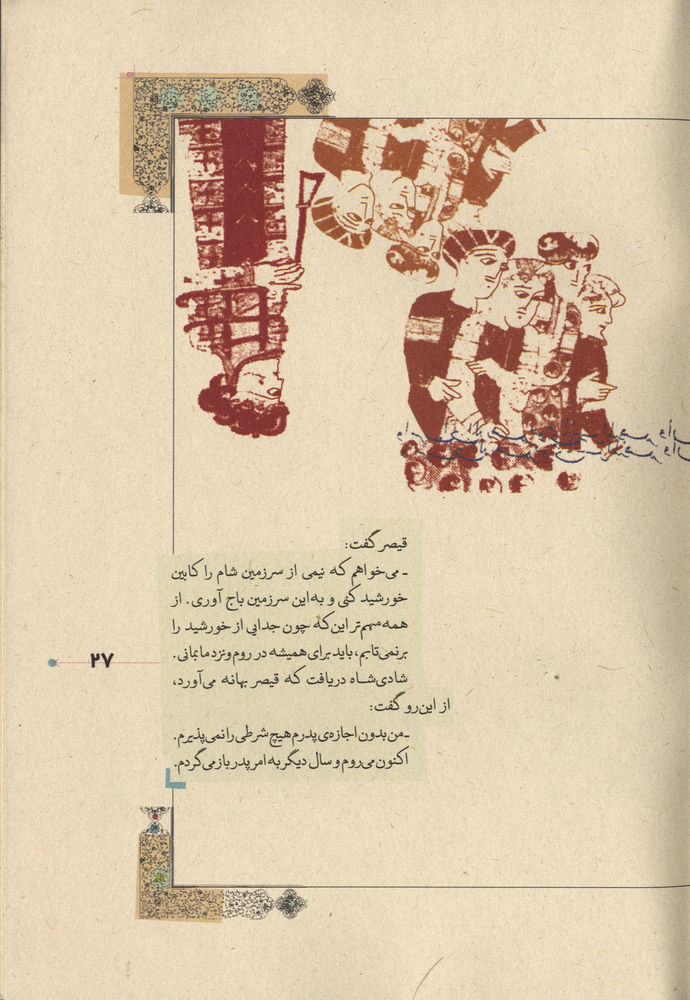 قیصر گفت:
ـ می‌خواهم که نیمی از سرزمین شام را کابین
خورشید کنی و به این سرزمین باج آوری. از
همه مهم‌تر این‌که چون جدایی از خورشید را
برنمی‌تابم، باید برای همیشه در روم و نزد ما بمانی.
شادی‌شاه دریافت که قیصر بهانه می‌آورد،
از این‌رو گفت:
ـ من بدون اجازه‌ی پدرم هیچ شرطی را نمی‌پذیرم.
اکنون می‌روم و سال دیگر به امر پدر باز می‌گردم.
۲۷